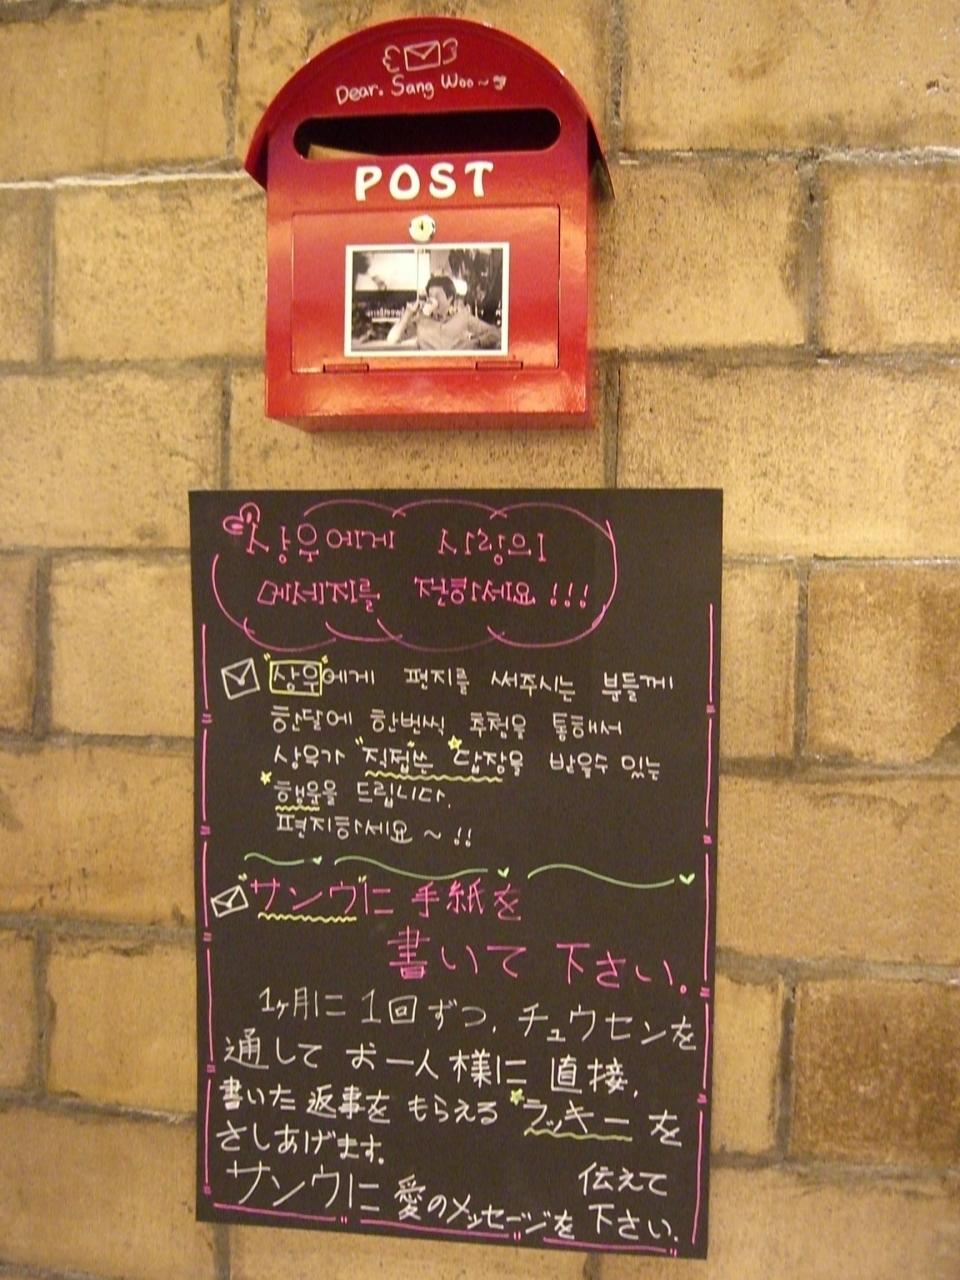 Dear. Sang Woo~
POST
상우에게 사랑의
메세지를 전하세요!!!
"상우"에게 편지를 써주시는 분들께
한달에 한번씩 추첨을 통해서
상우가 "직접쓴" 답장을 받을수 있는
행운을 드립니다.
편지하세요~!!
"サンウ"に 手紙を
書いて 下さい.
1ヶ月に 1回ずつ, チュウセンを
通して お一人様に 直接,
書いた 返事を もらえる "ラッキーを
さしあげます.
サンウに 愛のメッセージを 伝えて
下さい.